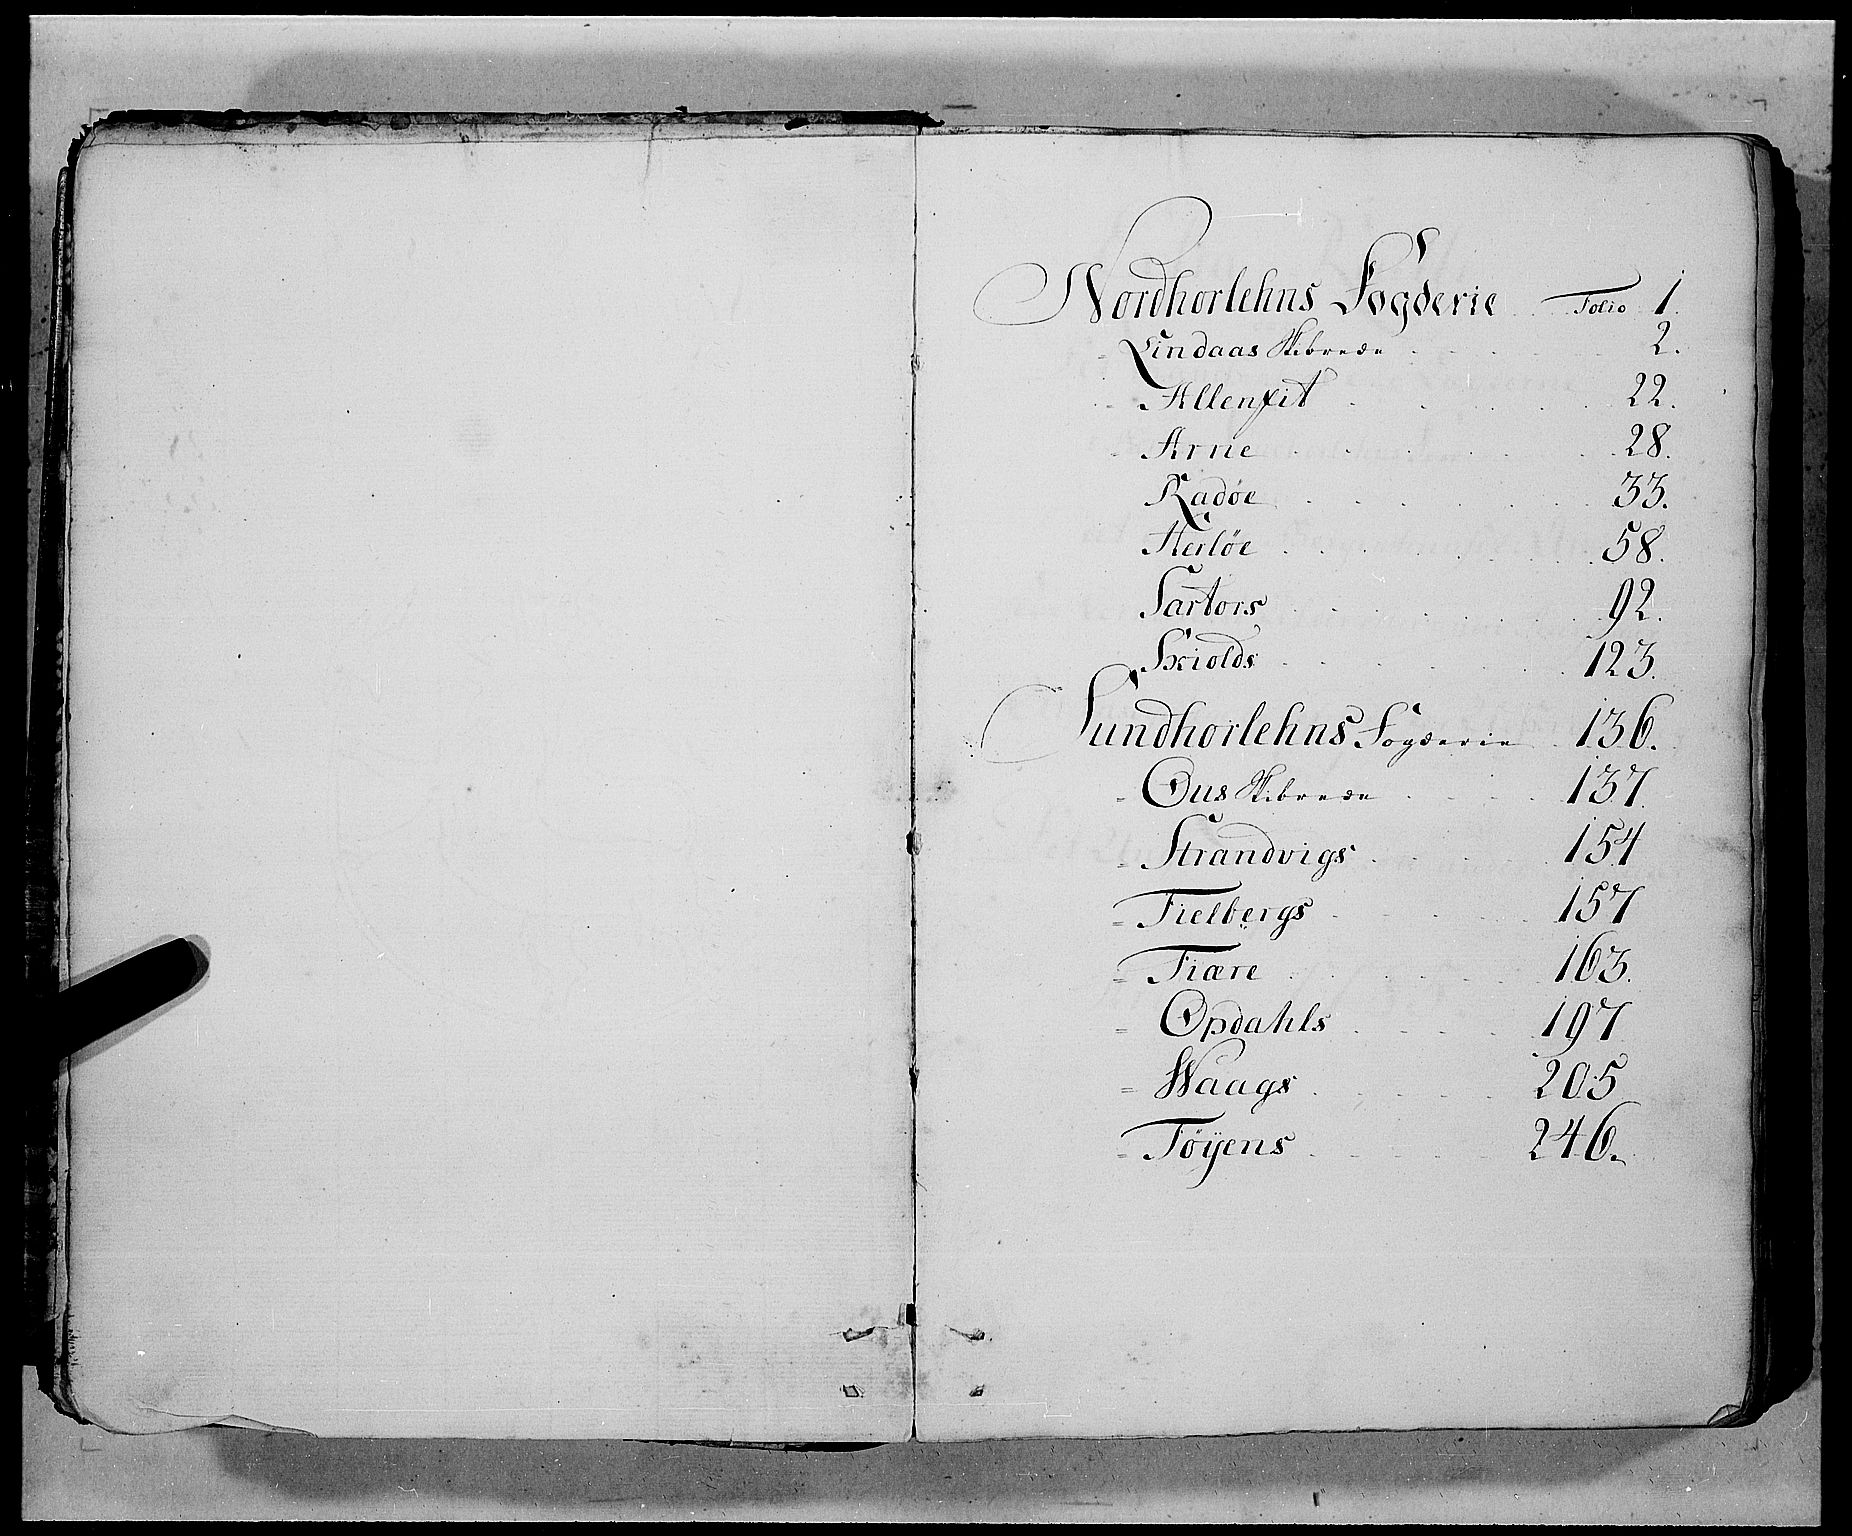 Nordhorlehns Fogderie . . Folio 1.
- Lindaas Skibrede . . . . . 2.
- Allenfit . . . . . 22.
- Arne . . . . . 28.
Radøe . . . . . 33.
Herløe . . . . . 58.
Sartors . . . . . 92.
Skiolds . . . . . 123.
Sundhorlehns Fogderie . 136.
= Ous Skibrede . . . . 137.
= Strandvigs . . . . 154
= Fielbergs . . . . 157
= Fiære . . . . 163.
= Opdahls . . . . 197
= Waags . . . . . 205
= Føÿens . . . . . 246.